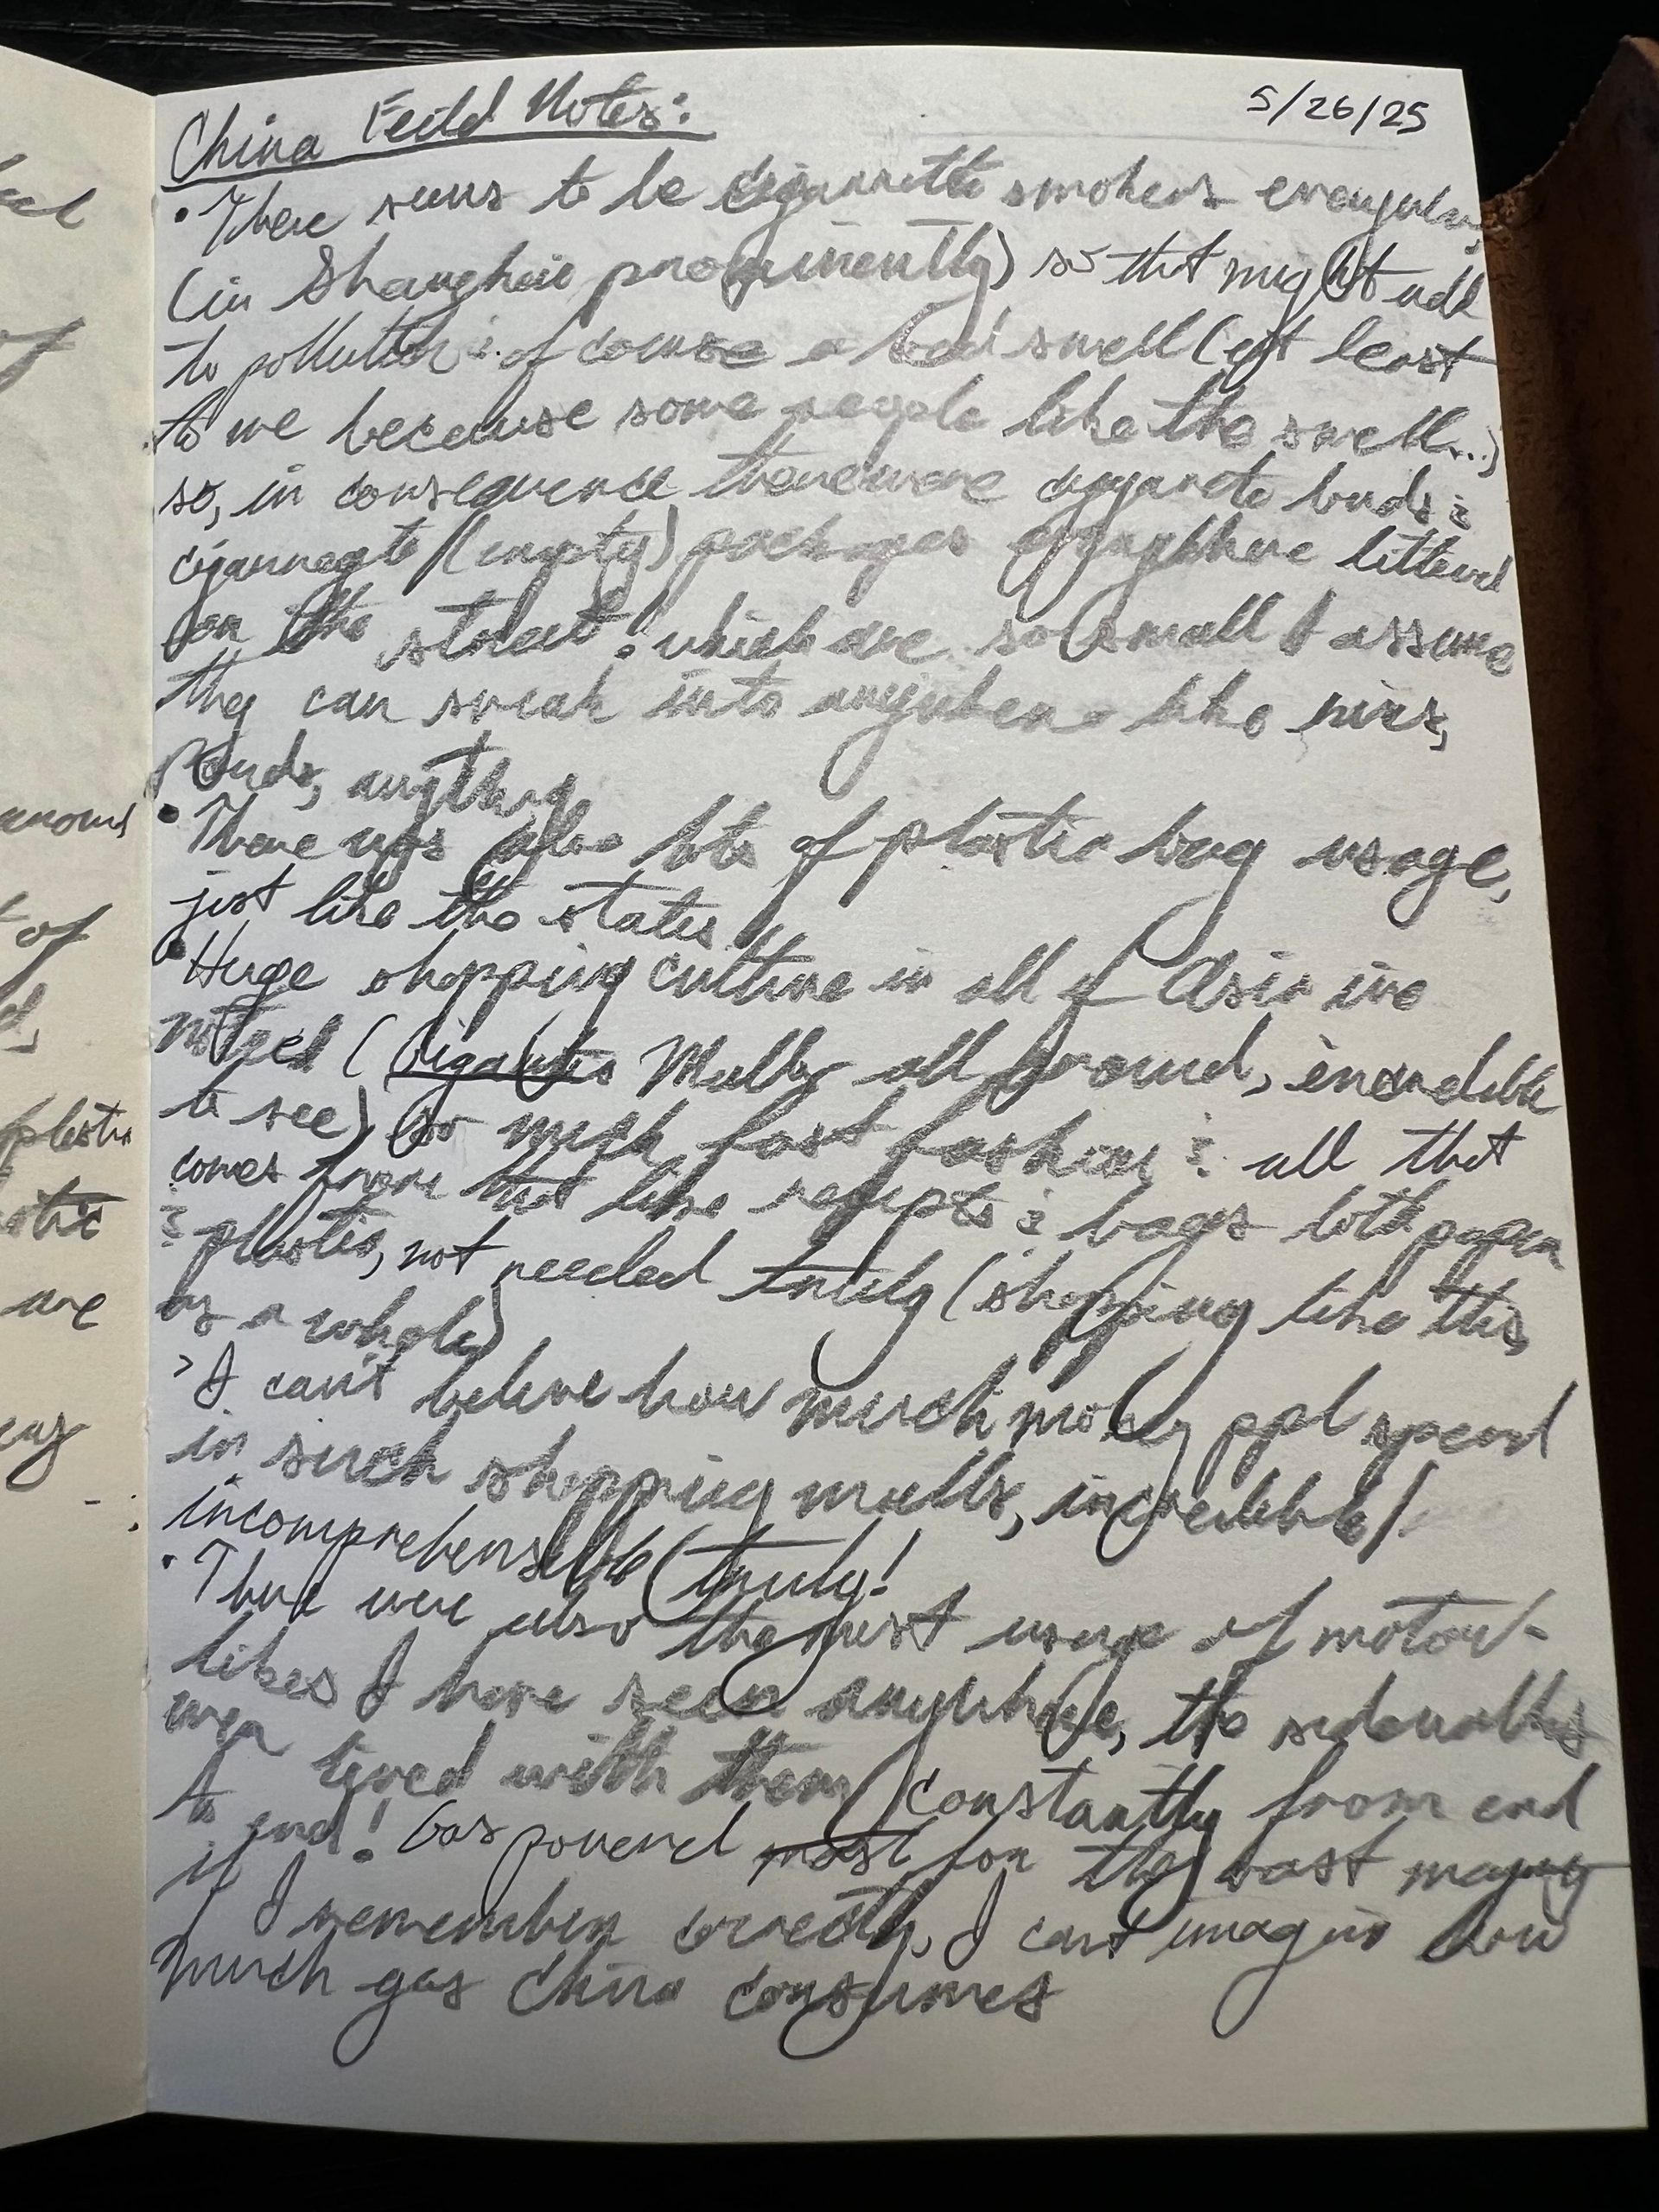 China Feild Notes:
5/26/25
• There seems to be cigarette smokers everywhere,
(in Shanghai prominently) so that might add
to pollution & of course a bad smell (at least
to me because some people like the smell...)
so, in consequence there were ciggarete buds &
cigarregte (empty) packages everywhere littered
on the street! which are so small I assume
they can sneak into anywhere like rivers,
ponds, anything
• There was also lots of plastic bag usage,
just like the states.
• Huge shopping culture in all of Asia ive
notced (Gigantic Malls all around, incredible
to see) so much fast fashion & all that
comes from that like recipts & bags both paper
& plastic, not needed truly (shopping like this,
as a whole)
> I can't believe how much money ppl spend
in such shopping malls, incredible!
incomprehensible truly!
• There were also the most usage of motor-
bikes I have seen anywhere, the sidewalks
wer lined with them constantly from end
to end! Gas powered most for the vast majority
if I remember correctly, I cant imagin how
much gas China consumes
of
anound
of
plastic
are